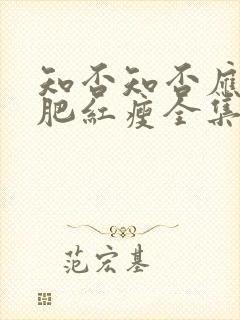 知否知否應
肥紅瘦全集
范宏基